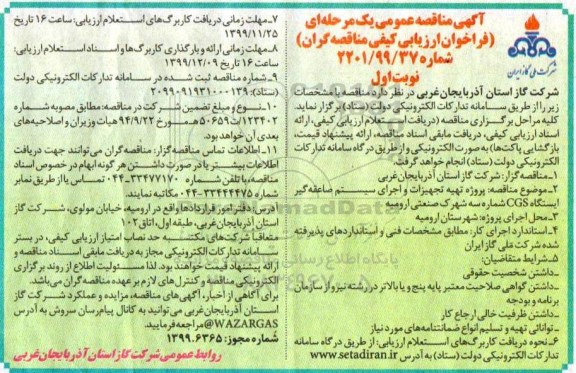 آگهی مناقصه عمومی یک مرحله‌ای
(فراخوان ارزیابی کیفی مناقصه گران)
شماره ۲۲۰۱/۹۹/۳۷
نوبت اول
شرکت ملی گاز ایران
شرکت گاز استان آذربایجان غربی در نظر دارد مناقصه با مشخصات
زیر را از طریق سامانه تدارکات الکترونیکی دولت (ستاد) برگزار نماید.
کلیه مراحل برگزاری مناقصه (دریافت استعلام ارزیابی کیفی، ارائه
اسناد ارزیابی کیفی، دریافت مابقی اسناد مناقصه، ارائه پیشنهاد قیمت،
بازگشایی پاکت‌ها) به صورت الکترونیکی و از طریق درگاه سامانه تدارکات
الکترونیکی دولت (ستاد) انجام خواهد گرفت.
۱-مناقصه گزار: شرکت گاز استان آذربایجان غربی
۲-موضوع مناقصه: پروژه تهیه تجهیزات و اجرای سیستم صاعقه گیر
ایستگاه CGS شماره سه شهرک صنعتی ارومیه
۳-محل اجرای پروژه: شهرستان ارومیه
۴-استاندارد اجرای کار: مطابق مشخصات فنی و استانداردهای پذیرفته
شده شرکت ملی گاز ایران
۵-شرایط متقاضیان:
-داشتن شخصیت حقوقی
-داشتن گواهی صلاحیت معتبر پایه پنج و یا بالاتر در رشته نیرو از سازمان
برنامه و بودجه
-داشتن ظرفیت خالی ارجاع کار
-توانائی تهیه و تسلیم انواع ضمانتنامه‌های مورد نیاز
۶-نحوه دریافت کاربرگ‌های استعلام ارزیابی: از طریق درگاه سامانه
تدارکات الکترونیکی دولت (ستاد) به آدرس www.setadiran.ir
۷-مهلت زمانی دریافت کاربرگ‌های استعلام ارزیابی: ساعت ۱۶ تاریخ
۱۳۹۹/۱۱/۲۵
۸-مهلت زمانی ارائه و بارگذاری کاربرگ‌ها و اسناد استعلام ارزیابی:
ساعت ۱۶ تاریخ ۱۳۹۹/۱۲/۰۹
۹-شماره مناقصه ثبت شده در سامانه تدارکات الکترونیکی دولت
(ستاد): ۲۰۹۹۰۹۱۹۳۱۰۰۰۱۳۹
۱۰-نوع و مبلغ تضمین شرکت در مناقصه: مطابق مصوبه شماره
۱۲۳۴۰۲/ت۵۰۶۵۹ه مورخ ۹۴/۹/۲۲ هیات وزیران و اصلاحیه‌های
بعدی آن خواهد بود.
۱۱-اطلاعات تماس مناقصه گزار: مناقصه گران می‌توانند جهت دریافت
اطلاعات بیشتر یا در صورت داشتن هر گونه ابهام در خصوص اسناد
مناقصه، با تلفن شماره ۳۳۴۷۷۱۷۰-۰۴۴ تماس یا از طریق نمابر
شماره ۳۳۴۴۴۴۷۵-۰۴۴ مکاتبه نمایند.
آدرس: دفتر امور قراردادها واقع در ارومیه، خیابان مولوی، شرکت گاز
استان آذربایجان غربی، طبقه اول، اتاق ۱۰۲
متعاقبا شرکت‌های مکتسبه حد نصاب امتیاز ارزیابی کیفی، در بستر
سامانه تدارکات الکترونیکی مجاز به دریافت مابقی اسناد مناقصه و
ارائه پیشنهاد قیمت خواهند بود. لذا مسئولیت اطلاع از روند برگزاری
الکترونیکی مناقصه و کنترل‌های لازم بر عهده مناقصه گران می‌باشد.
برای آگاهی از اخبار، آگهی‌های مناقصه، مزایده و عملکرد شرکت گاز
استان آذربایجان غربی می‌توانید به کانال پیام‌رسان سروش به آدرس
@WAZARGAS مراجعه فرمایید.
شماره مجوز: ۱۳۹۹.۶۳۶۵
روابط عمومی شرکت گاز استان آذربایجان غربی